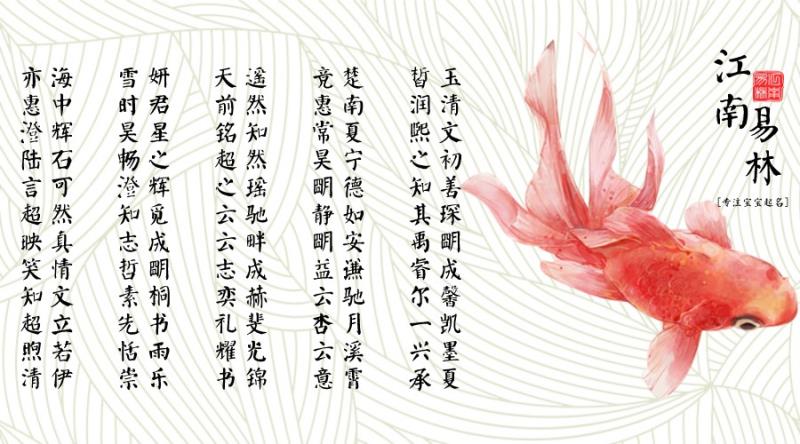 江南
易林
江南易林
[专注宝宝起名]
玉清文初善琛明成馨凯墨夏
皙润熙之知其禹睿尔一兴承
楚南夏宁德如安谦驰月溪霄
竞惠常昊明静明益云杏云意
遥然知然瑶驰畔成赫斐光锦
天前铭超之云云志奕礼耀书
妍君星之辉觅成明桐书雨乐
雪时昊畅澄知志哲素先恬崇
海中辉石可然真情文立若伊
亦惠澄陆言超映笑知超煦清